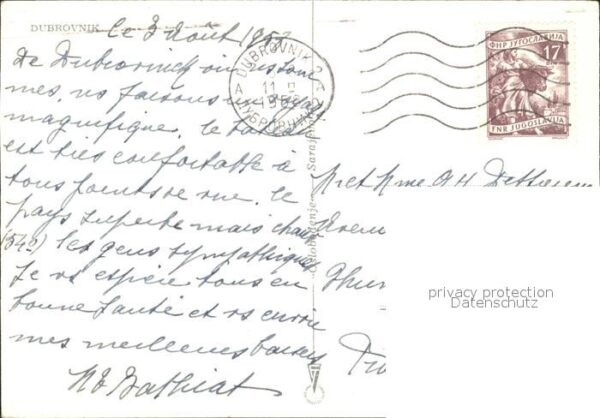 DUBROVNIK
le 3 Août 195
De Dubrovnik où ns som
mes, ns faisons un voyage
magnifique, le bateau
est très confortable à
tous points de vue, le
pays superbe mais chaud
(34°) les gens sympathiques
Je vs espère tous en
bonne santé et vs envoie
mes meilleurs baisers
DUBROVNIK 2
ДУБРОВНИК
A
11
ФНР ЈУГОСЛАВИЈА
17
DIN
FNR JUGOSLAVIJA
"Oslobođenje" Sarajevo
M et Mme
privacy protection
Datenschutz